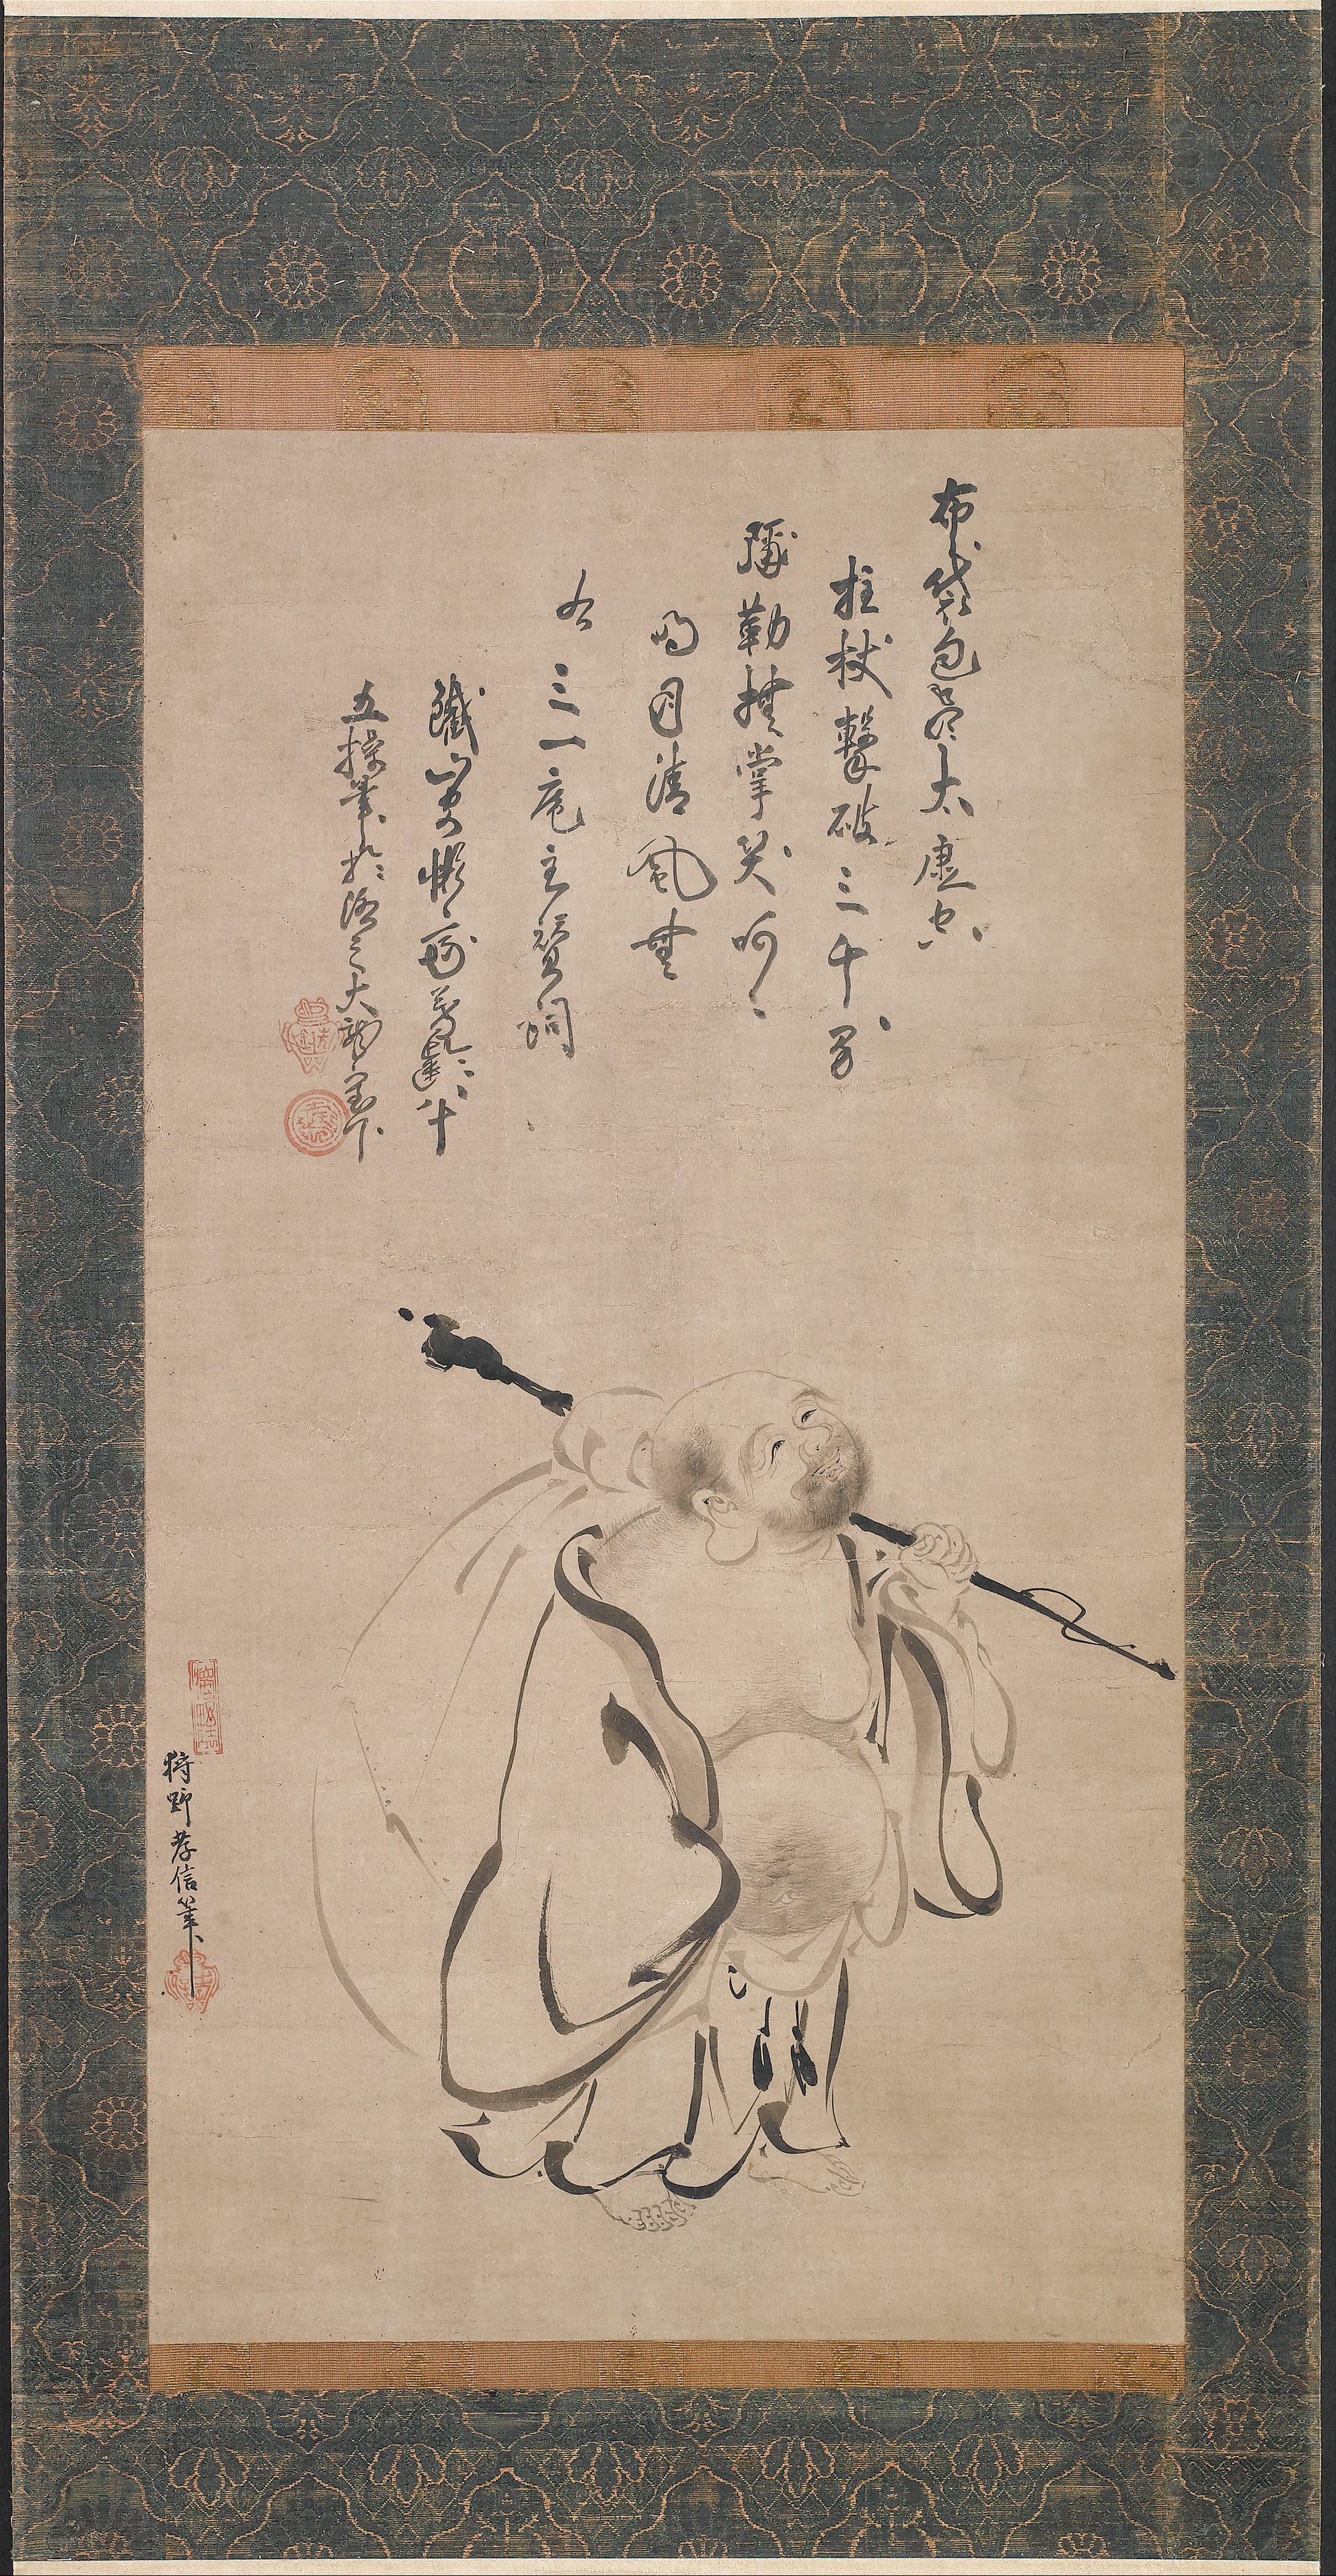 布袋包盡太虚空
拄杖撃破三千界
彌勒撫掌笑呵〻
明月清風無
三一庵主賛詞
鐵山叟 八十
五操筆於洛之大龍室下
狩野孝信筆